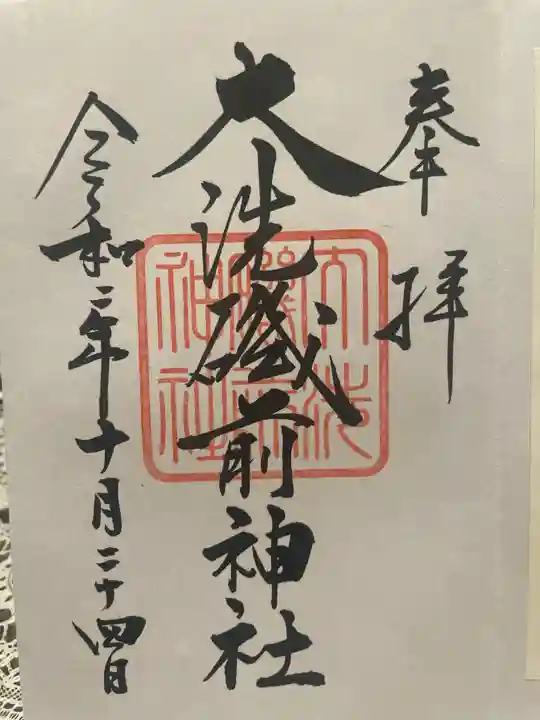 奉拝
大洗磯前神社
大洗磯前神社
令和二年十月二十四日